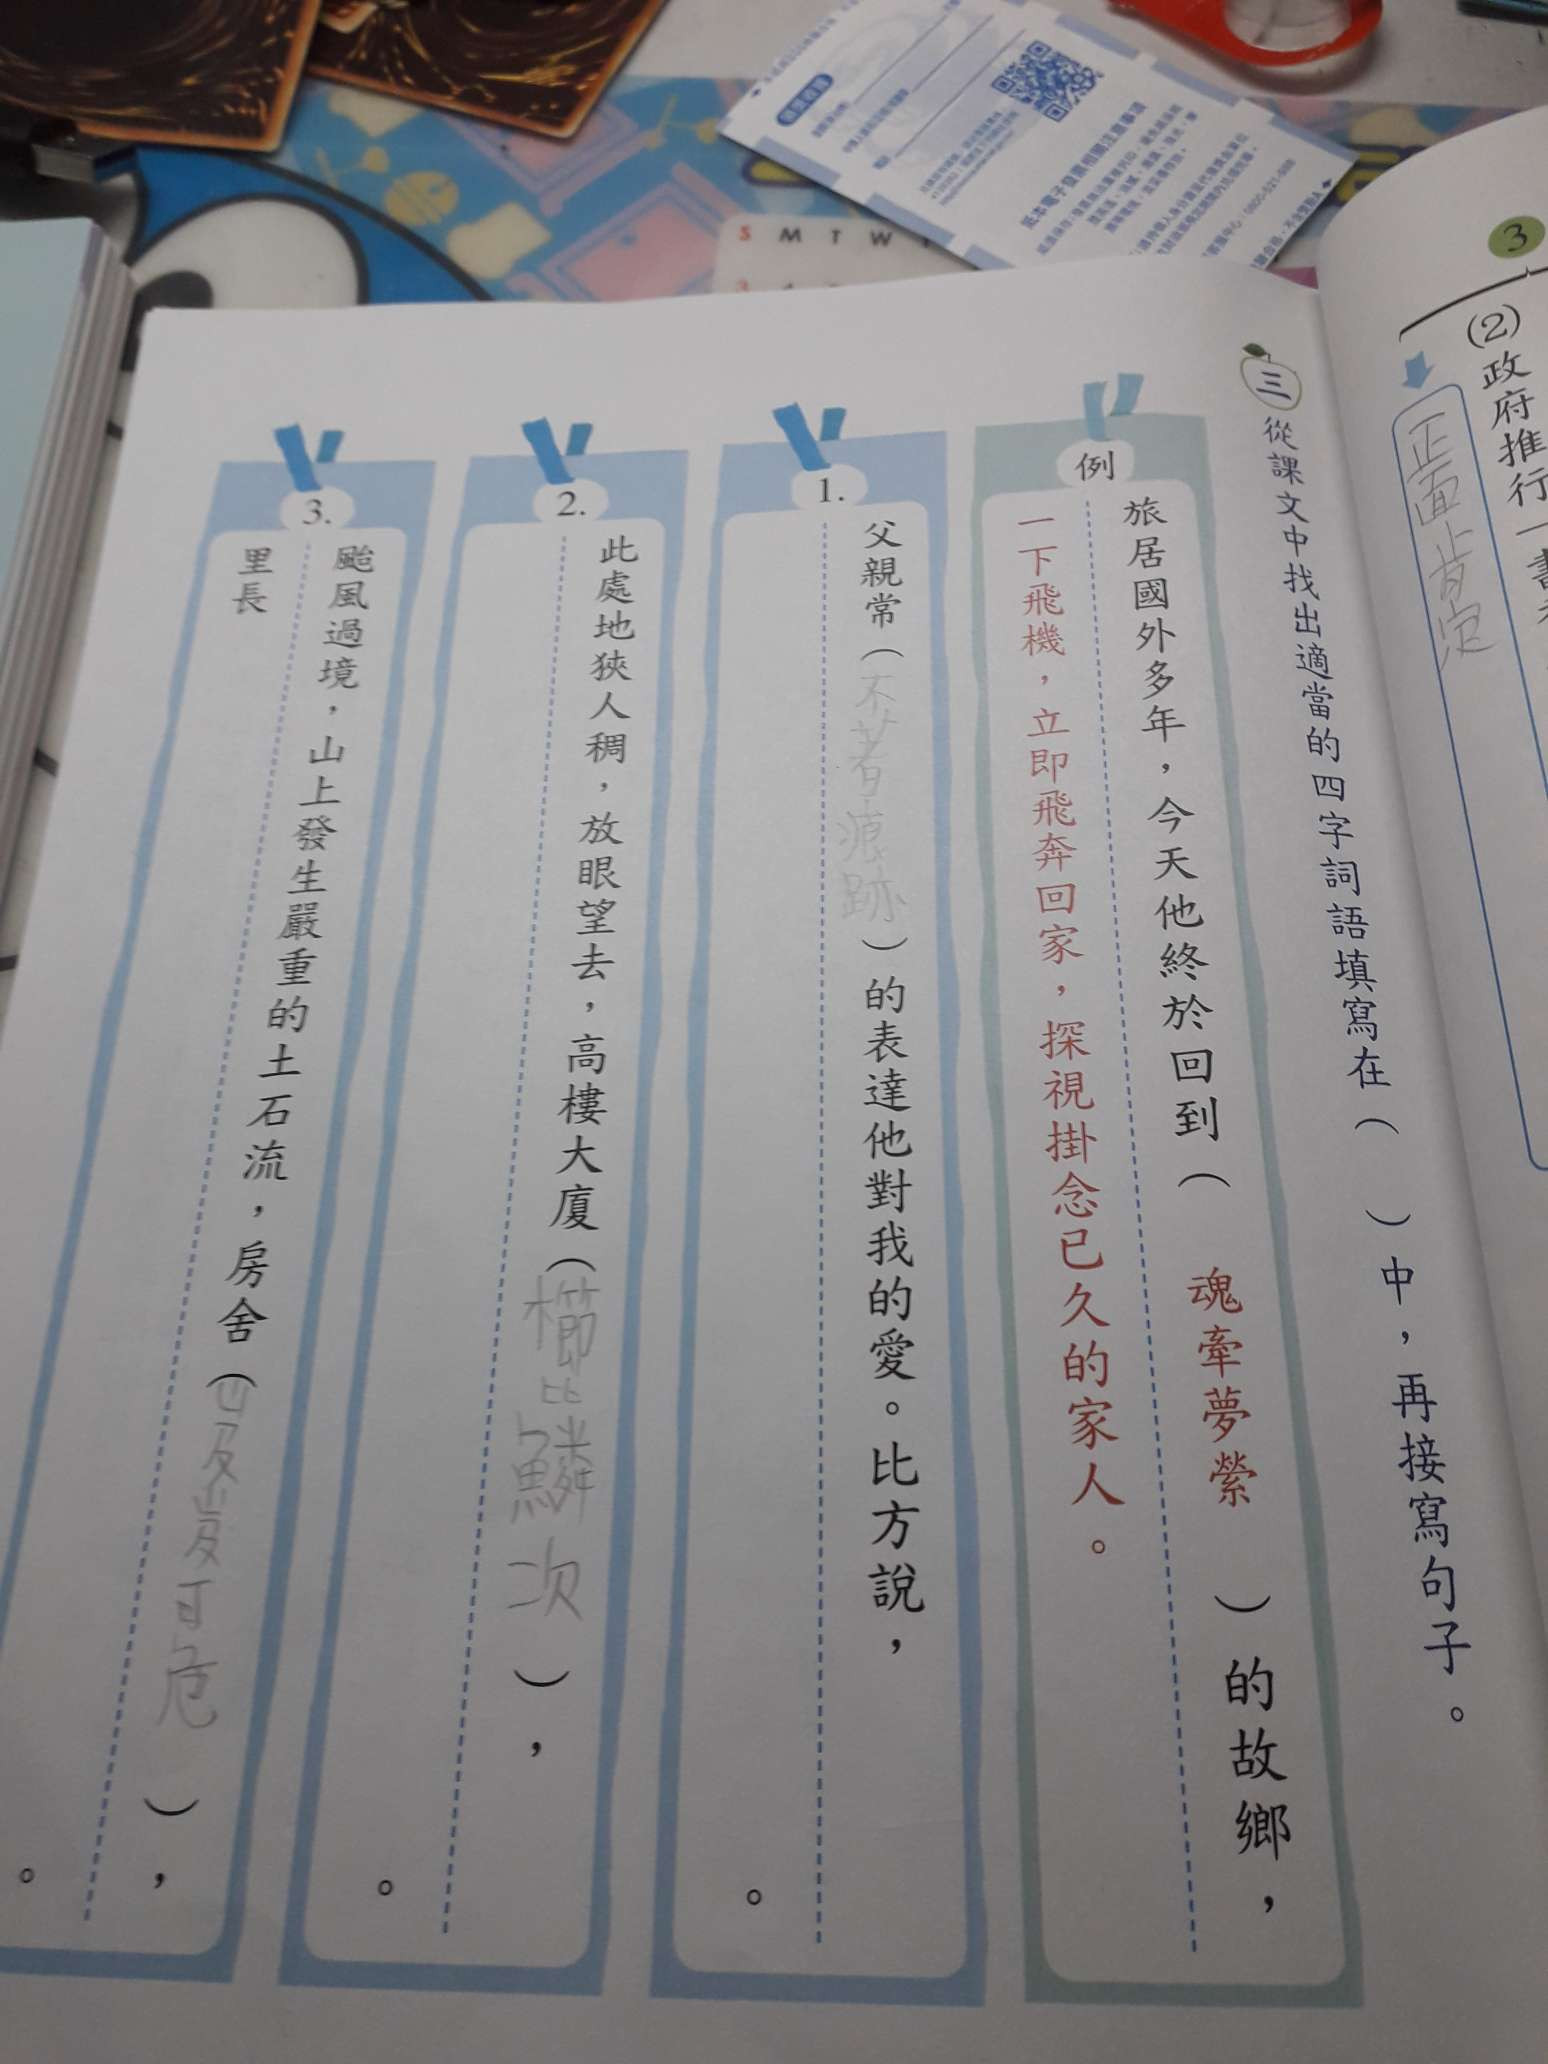 3
(2)政府推行一書
正面肯定
三 從課文中找出適當的四字詞語填寫在（　）中，再接寫句子。
例
旅居國外多年，今天他終於回到（魂牽夢縈）的故鄉，
一下飛機，立即飛奔回家，探視掛念已久的家人。
1.
父親常（不著痕跡）的表達他對我的愛。比方說，
。
2.
此處地狹人稠，放眼望去，高樓大廈（櫛比鱗次），
。
3.
颱風過境，山上發生嚴重的土石流，房舍（岌岌可危），
里長
。
紙本電子發票相關注意事項
S M T W